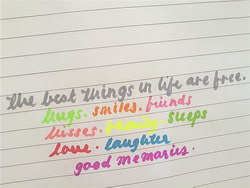 the best things in life are free.
hugs. smiles. friends
kisses. family. sleeps
love. laughter
good memories.